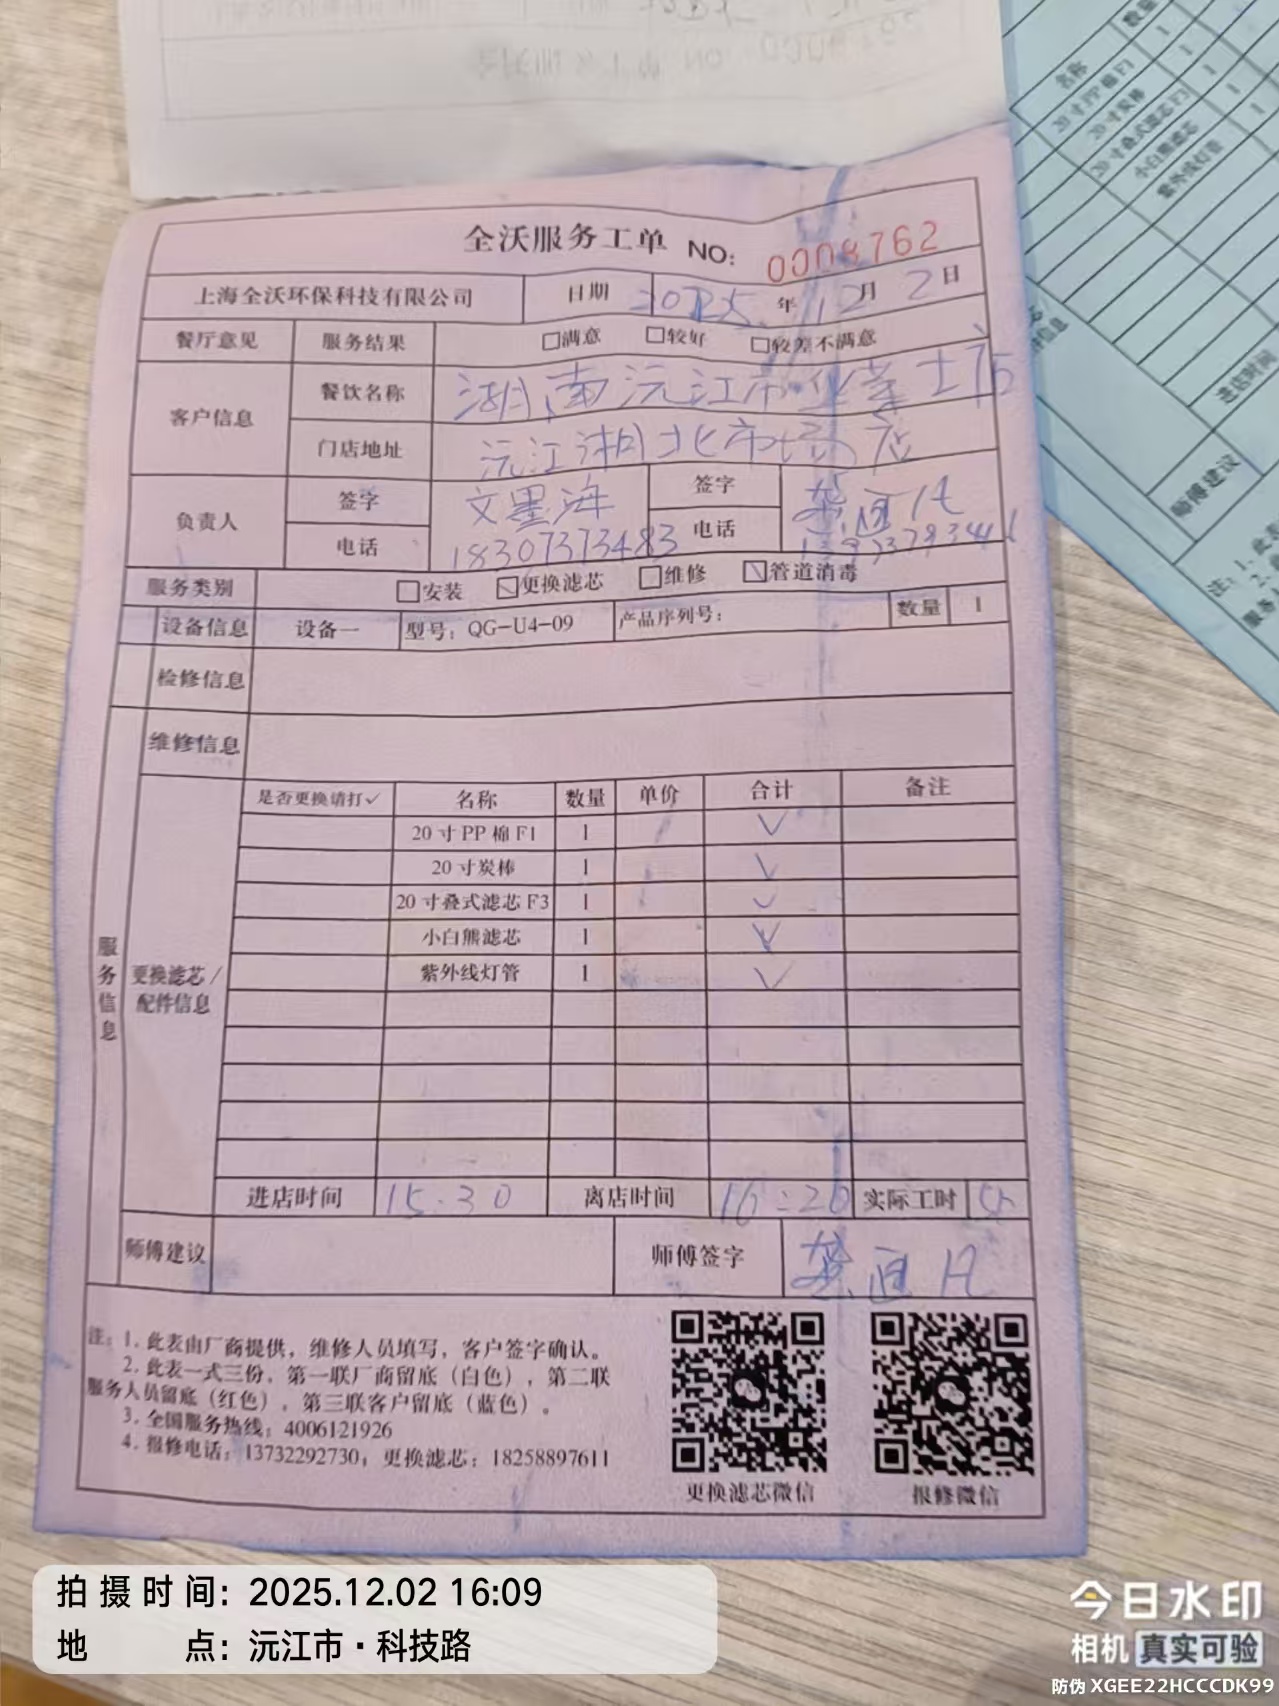 全沃服务工单 NO: 0008762
上海全沃环保科技有限公司 日期 2025年12月2日
餐厅意见 服务结果 □满意 □较好 □较差不满意
客户信息 餐饮名称 湖南沅江市 士店
门店地址 沅江湖北市场店
负责人 签字 文墨海 签字
电话 18307373483 电话
服务类别 □安装 ☑更换滤芯 □维修 ☑管道消毒
设备信息 设备一 型号: QG-U4-09 产品序列号: 数量 1
检修信息
维修信息
服务信息
更换滤芯/配件信息
是否更换请打✓ 名称 数量 单价 合计 备注
20寸PP棉F1 1 ✓
20寸炭棒 1 ✓
20寸叠式滤芯F3 1 ✓
小白熊滤芯 1 ✓
紫外线灯管 1 ✓
进店时间 15:30 离店时间 16:20 实际工时
师傅建议 师傅签字
注: 1. 此表由厂商提供，维修人员填写，客户签字确认。
2. 此表一式三份，第一联厂商留底（白色），第二联
服务人员留底（红色），第三联客户留底（蓝色）。
3. 全国服务热线: 4006121926
4. 报修电话: 13732292730; 更换滤芯: 18258897611
更换滤芯微信 报修微信
名称 数量
20寸PP棉F1 1
20寸炭棒 1
20寸叠式滤芯F3 1
小白熊滤芯 1
紫外线灯管
进店时间
师傅建议
拍摄时间: 2025.12.02 16:09
地点: 沅江市·科技路
今日水印
相机 真实可验
防伪 XGEE22HCCCDK99